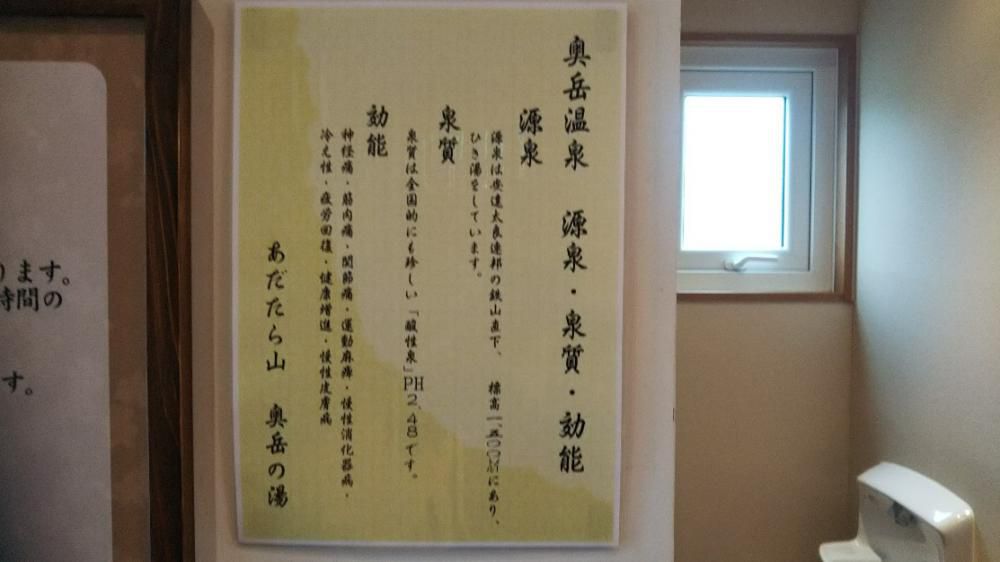 奥岳温泉 源泉・泉質・効能
源泉
源泉は安達太良連邦の鉄山直下、 標高一、五〇〇Mにあり、
ひき湯をしています。
泉質
泉質は全国的にも珍しい「酸性泉」PH2.48です。
効能
神経痛・筋肉痛・関節痛・運動麻痺・慢性消化器病・
冷え性・疲労回復・健康増進・慢性皮膚病
あだたら山 奥岳の湯
ります。
時間の
す。